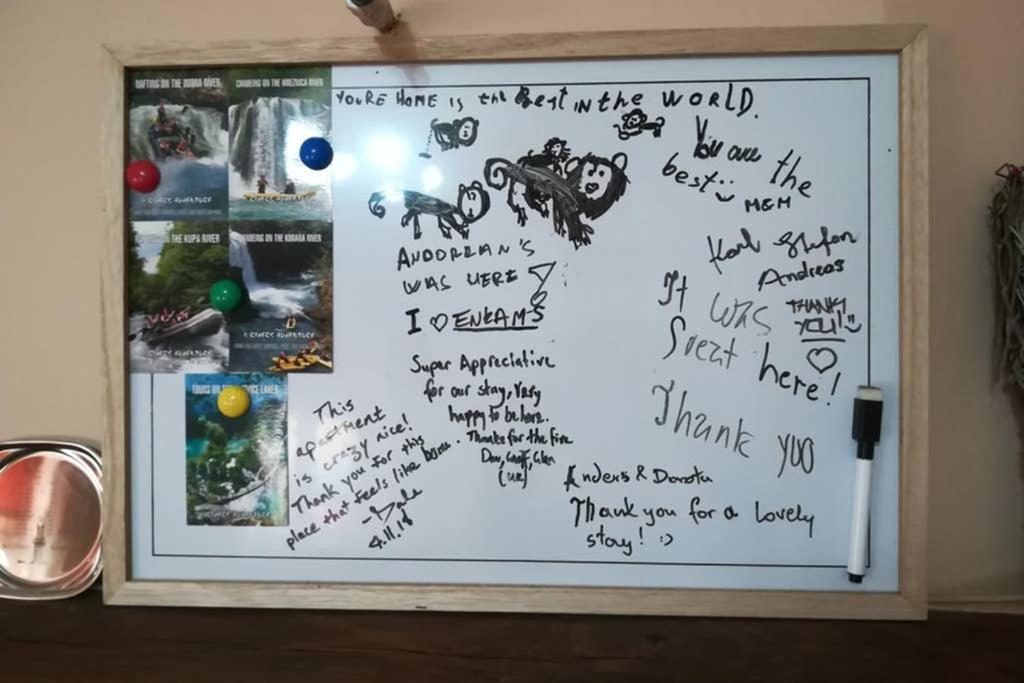 RAFTING ON THE DOBRA RIVER
RIVERS ADVENTURE
CANOEING ON THE MREZNICA RIVER
RIVERS ADVENTURE
ON THE KUPA RIVER
RIVERS ADVENTURE
CANOEING ON THE KORANA RIVER
RIVERS ADVENTURE
TOURS ON LAKES
RIVERS ADVENTURE
YOU'RE HOME IS the Best IN the WORLD.
You are the
best
M&M
ANDORRAN'S
WAS HERE
I ♡ ENKAM'S
Karl Stefan
Andreas
THANK
YOU!!
It was
Great here!
Thank you
Super Appreciative
for our stay, Very
happy to be here.
Thanks for the fire
Dav, Geoff, Glen
(UK)
This
apartment
is crazy nice!
Thank you for this
place that feels like home.
4.11.18
Anders & Dorota
Thank you for a Lovely
stay! :)